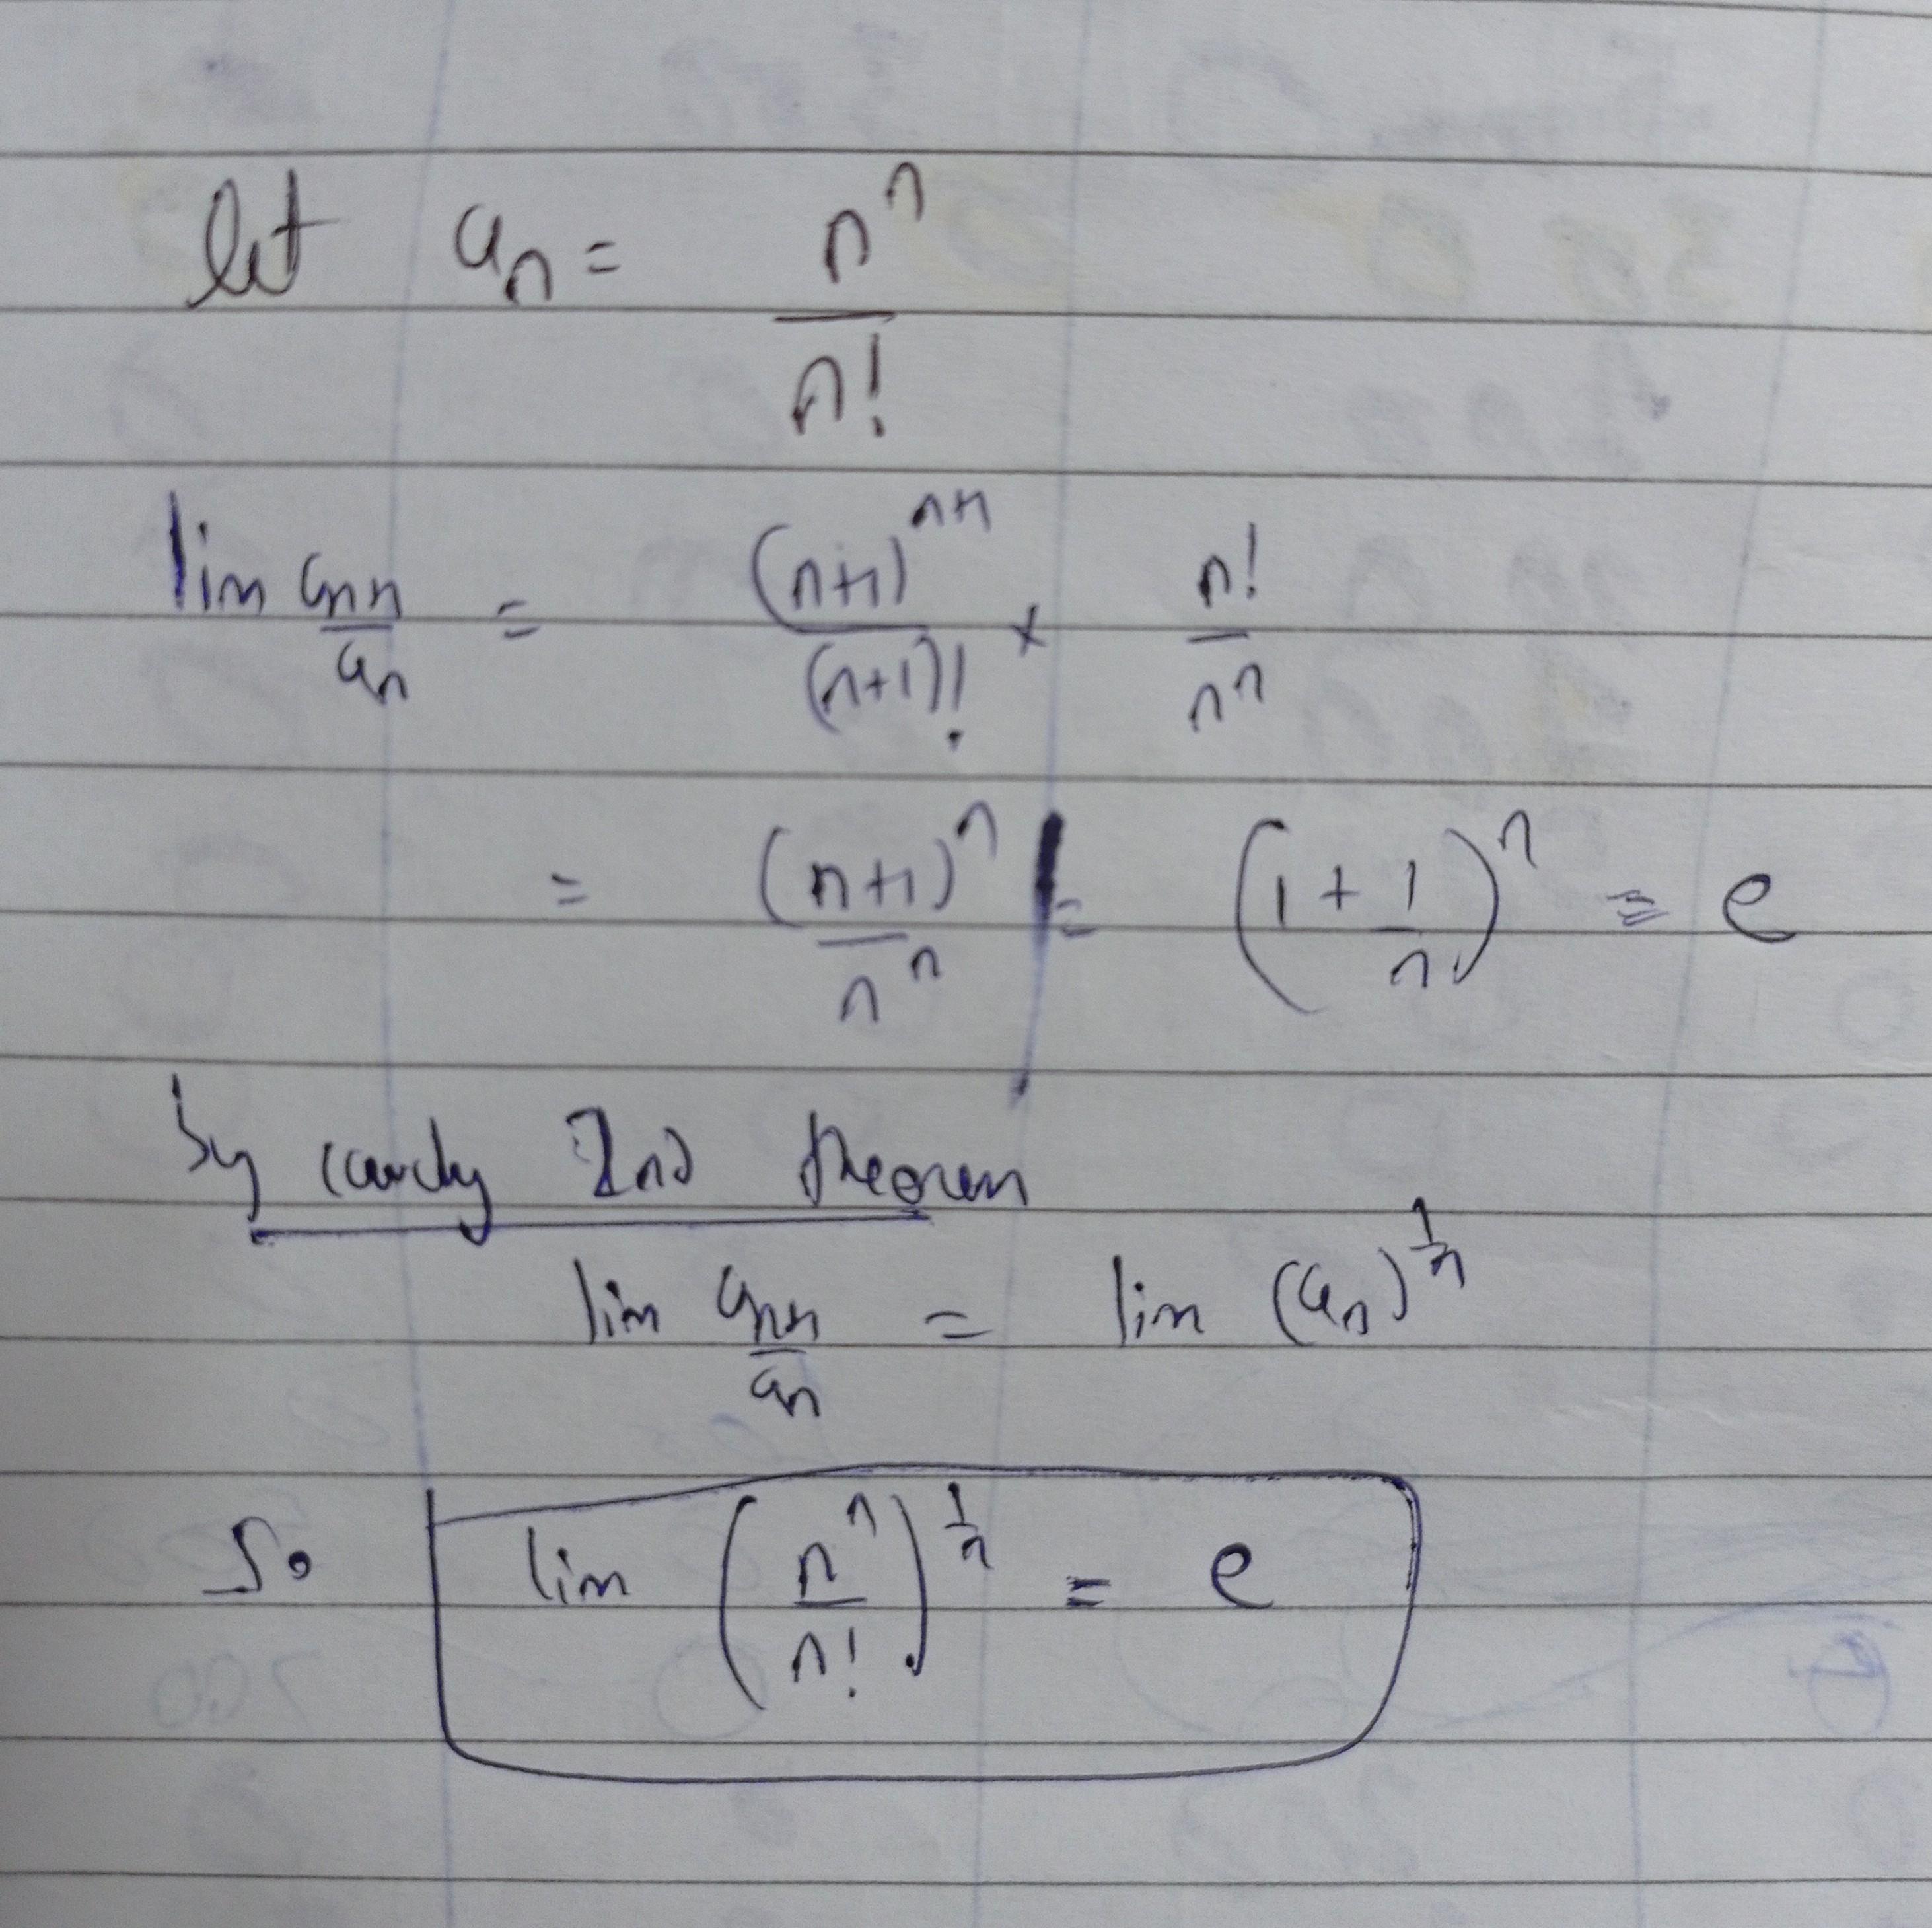 let aₙ = nⁿ / n!
lim aₙ₊₁ / aₙ = (n+1)ⁿ⁺¹ / (n+1)! × n! / nⁿ
= (n+1)ⁿ / nⁿ = (1 + 1/n)ⁿ = e
by cauchy 2nd theorem
lim aₙ₊₁ / aₙ = lim (aₙ)^(1/n)
So lim (nⁿ / n!)^(1/n) = e